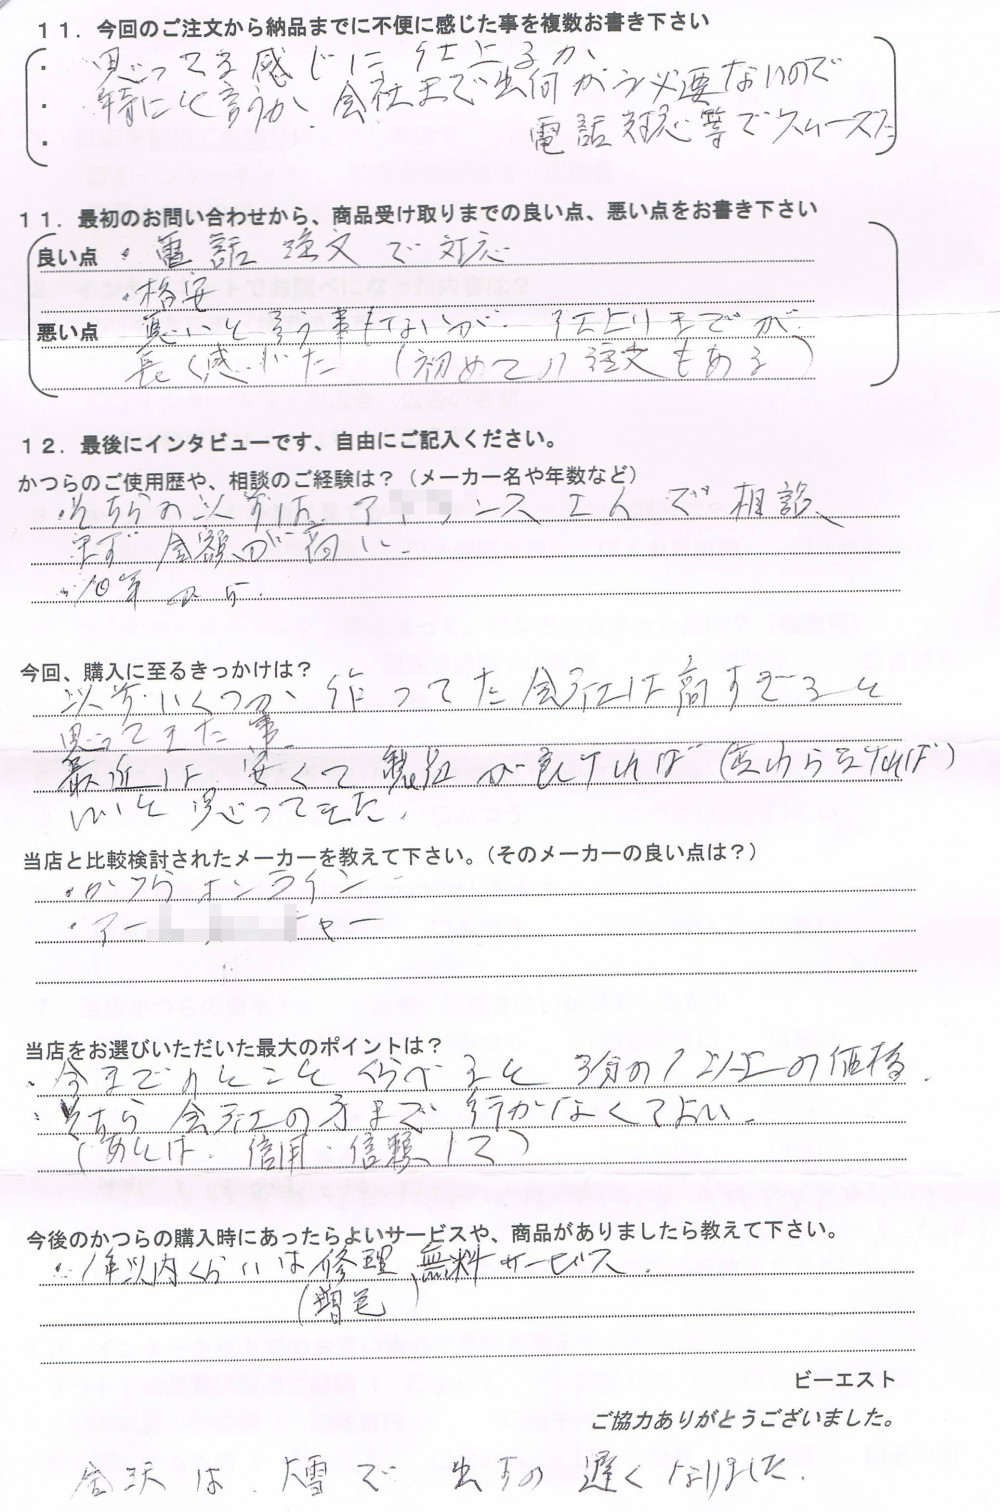 １１．今回のご注文から納品までに不便に感じた事を複数お書き下さい
・思ってる感じに仕上るか
・特にと言うか、会社まで出向かう必要ないので
・電話対応等でスムーズだ
１１．最初のお問い合わせから、商品受け取りまでの良い点、悪い点をお書き下さい
良い点 ・電話注文で対応
・格安
悪い点 悪いと言う事もないが、仕上りまでが
長く感じた（初めての注文もある）
１２．最後にインタビューです、自由にご記入ください。
かつらのご使用歴や、相談のご経験は？（メーカー名や年数など）
・そちらの以前は、ア ンスさんで相談、
まず金額が高い、
・10年
今回、購入に至るきっかけは？
以前いくつか作ってた会社は高すぎると
思ってきた事、
最近は安くて製品が良ければ（変わらなければ）
いいと思ってきた。
当店と比較検討されたメーカーを教えて下さい。（そのメーカーの良い点は？）
・かつらオンライン
・アー チャー
当店をお選びいただいた最大のポイントは？
・今までのとことくらべると3分の1以上の価格、
・そちら会社の方まで行かなくてよい。
（あとは、信用、信頼して）
今後のかつらの購入時にあったらよいサービスや、商品がありましたら教えて下さい。
・1年以内くらいは修理、無料サービス、
（増毛）
ビーエスト
ご協力ありがとうございました。
金沢は、大雪で出すの遅くなりました、